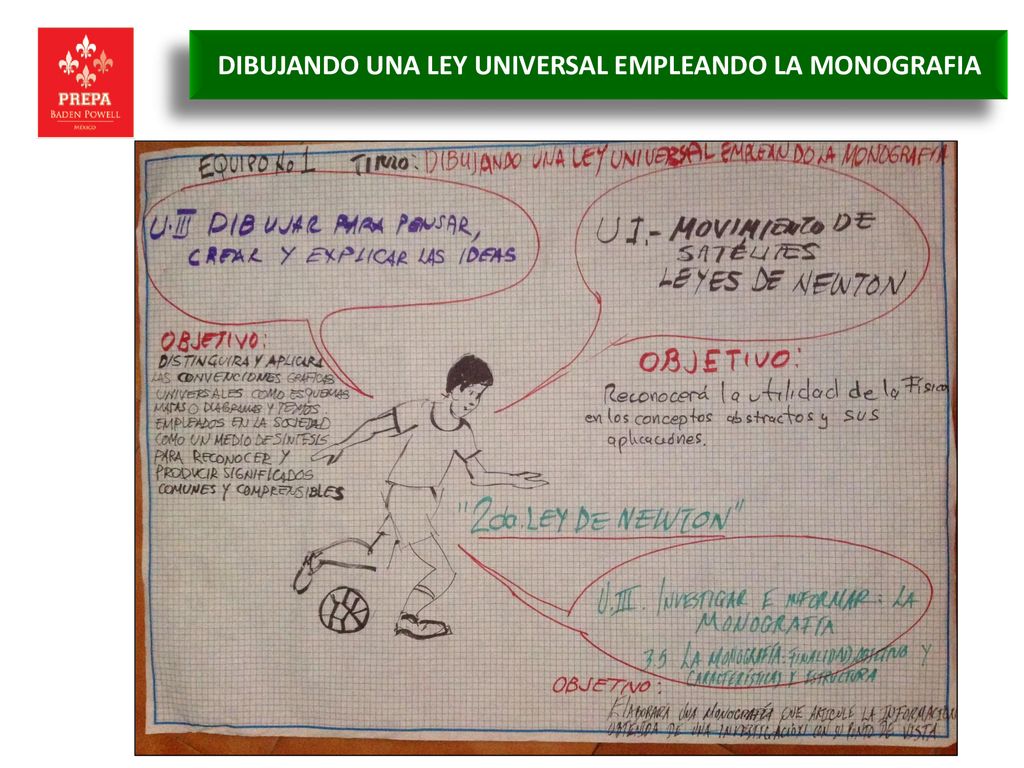 PREPA
BADEN POWELL
MÉXICO
DIBUJANDO UNA LEY UNIVERSAL EMPLEANDO LA MONOGRAFIA
EQUIPO No 1 TITULO: DIBUJANDO UNA LEY UNIVERSAL EMPLEANDO LA MONOGRAFIA
U.III DIBUJAR PARA PENSAR,
CREAR Y EXPLICAR LAS IDEAS
U I.- MOVIMIENTO DE
SATÉLITES
LEYES DE NEWTON
OBJETIVO:
DISTINGUIRA Y APLICARA
LAS CONVENCIONES GRAFICAS
UNIVERSALES COMO ESQUEMAS
MAPAS O DIAGRAMAS Y TEXTOS
EMPLEADOS EN LA SOCIEDAD
COMO UN MEDIO DE SINTESIS
PARA RECONOCER Y
PRODUCIR SIGNIFICADOS
COMUNES Y COMPRENSIBLES
OBJETIVO:
Reconocerá la utilidad de la Física
en los conceptos abstractos y sus
aplicaciónes.
"2da. LEY DE NEWTON"
U.III. INVESTIGAR E INFORMAR: LA
MONOGRAFÍA
3.5 LA MONOGRAFÍA: FINALIDAD, OBJETIVO Y
CARACTERÍSTICAS Y ESTRUCTURA
OBJETIVO:
ELABORARA UNA MONOGRAFÍA QUE ARTICULE LA INFORMACION
OBTENIDA DE UNA INVESTIGACION CON SU PUNTO DE VISTA